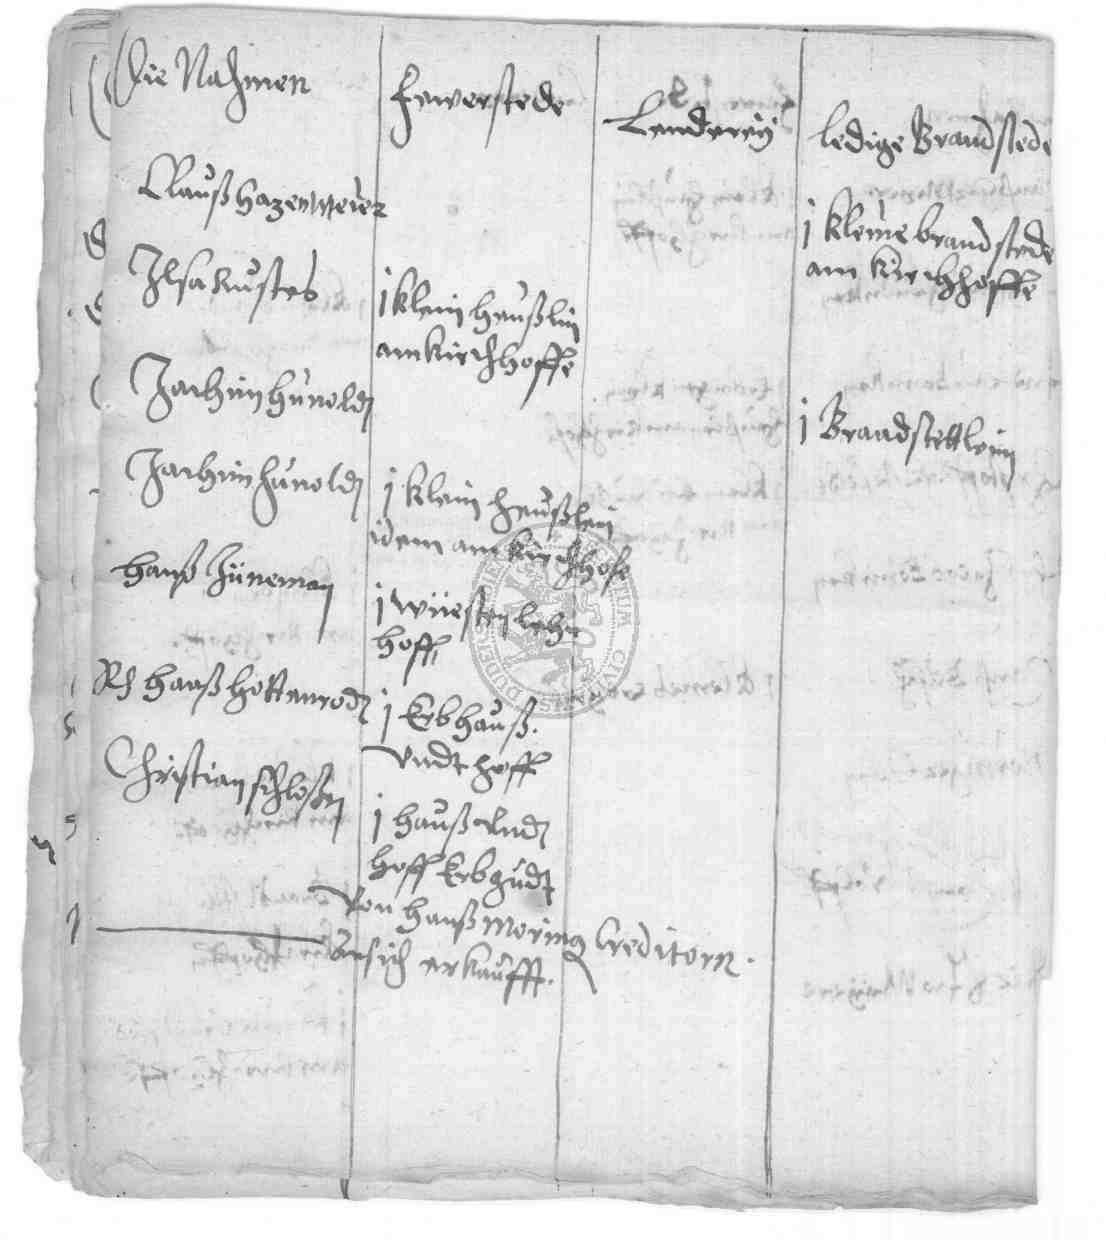 Die Nahmen
Fewerstede
Lenderey
ledige Brandstede
Clauß Hagenmeier
j kleine brandstede
am Kirchhoffe
Ilsa Kustes
j klein heußlin
am Kirchhoffe
Jachim Hunoldt
j Brandstettlein
Jachim Hunoldt
j klein heußlein
idem am Kirchhofe
Hanß Jüneman
j wüesten lehn
hoff
Hanß Hottenrodt
j Erbhauß
Vndt hoff
Christian
j hauß Vndt
hoff Erbgudt
Von Hanß Moring Creditorn.
ahn sich erkaufft.